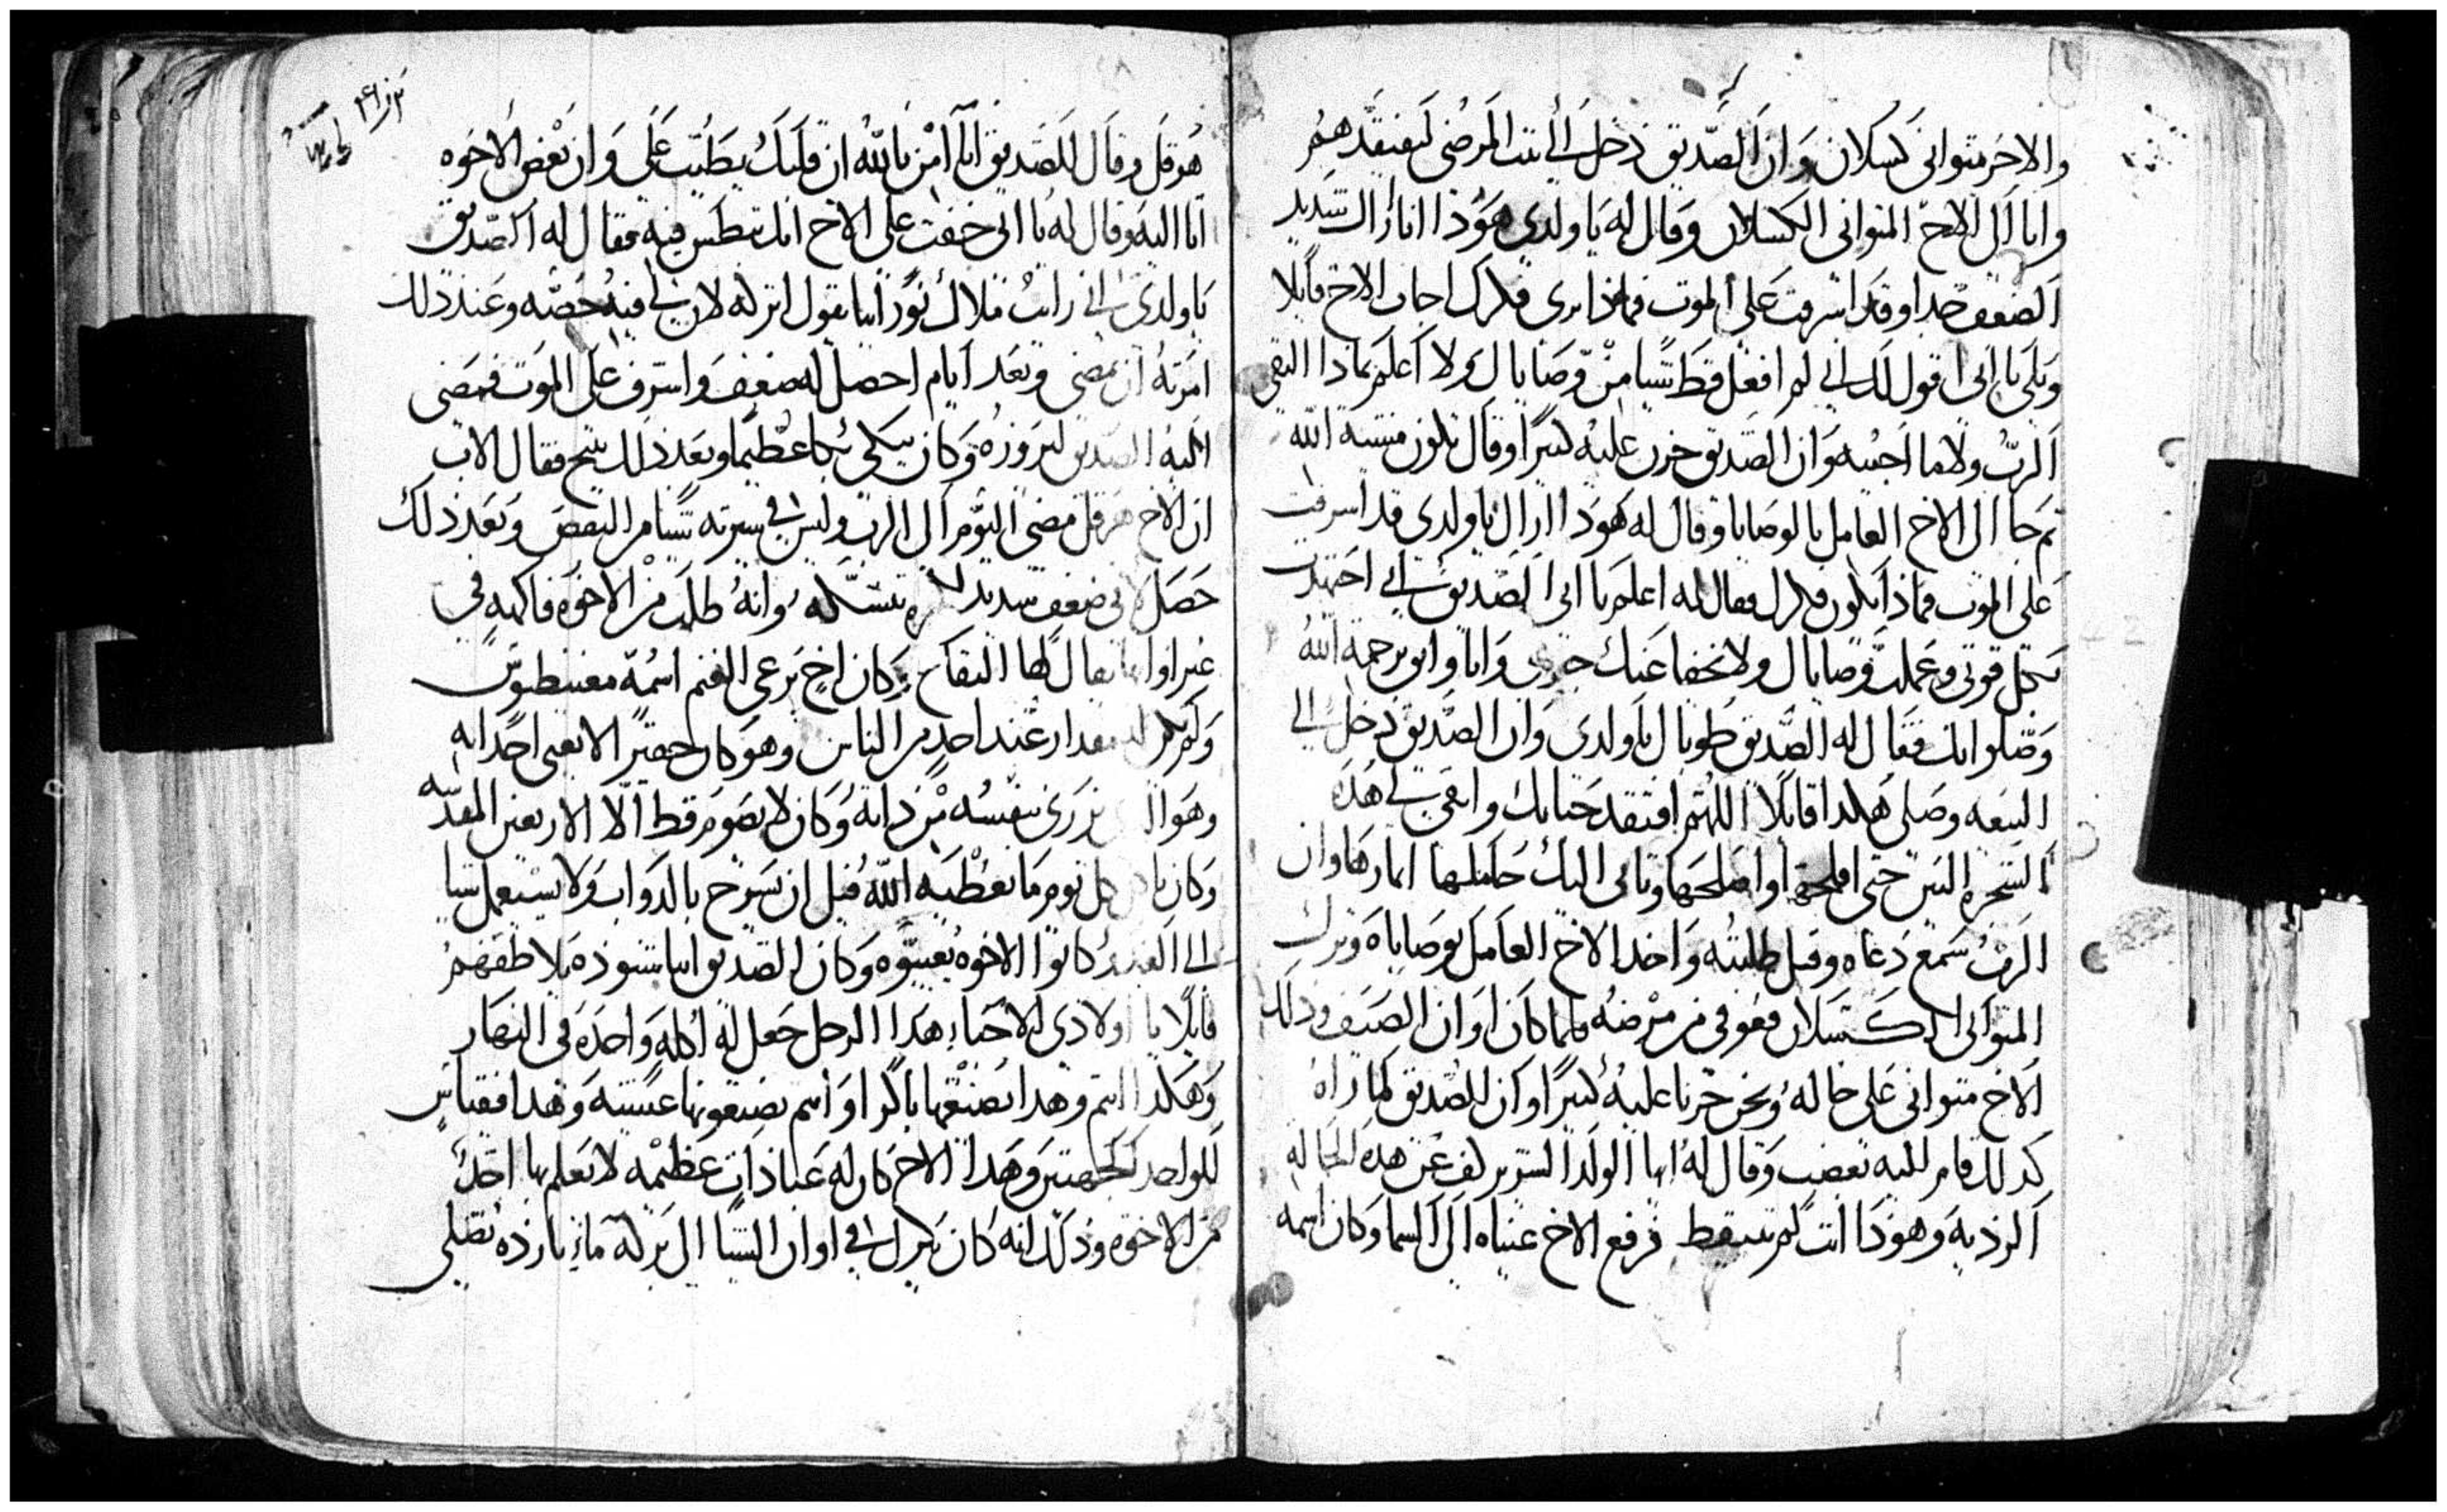 والاخر متوانى كسلان وان الصديق دخل الى بيت المرضى ليفتقدهم
واتا الى الاخ المتوانى الكسلان وقال له يا ولدى هوذا انا اراك شديد
الضعف جدا وقد اشرفت على الموت فماذا ترى فكرك اجاب الاخ قايلا
ويلى يا ابى اقول لك انى لم افعل قط شيا من وصايا ك ولا اعلم بماذا التقى
الرب ولا ما اجيبه وان الصديق حزن عليه كثيرا وقال تكون مشية الله
ثم جا الى الاخ العامل بالوصايا وقال له هوذا اراك يا ولدى قد اشرفت
على الموت فماذا يكون فكرك فقال له اعلم يا ابى الصديق انى اجتهدت
بكل قوتى وعملت وصاياك ولا يخفا عنك وانا واثق برحمة الله
وصلواتك فقال له الصديق طوباك يا ولدى وان الصديق دخل الى
البيعه وصلى هكدا قايلا اللهم افتقد حنانك وابقى لى هذه
الشجره التين حتى افلحها واصلحها وتاتى اليك حاملها اثمارها وان
الرب سمع دعاه وقبل طلبته واخد الاخ العامل بوصاياه وترك
المتوانى الكسلان فعوفى من مرضه فلما كان اوان الصيف ودلك
الاخ متوانى على حاله ونحن حزنا عليه كثيرا وكان الصديق لما راه
كدلك قام لليه بغضب وقال له ايها الولد الشرير كف عن هذه الحاله
الرديه وهوذا انت لم تستيقظ فرفع الاخ عيناه الى السما وكان اسمه
هرقل وقال للصديق انا امن بالله ان قلبك يطيب على وان بعض الاخوه
اتا اليه وقال له يا ابى خفت على الاخ انك تبطس فيه فقال له الصديق
يا ولدى انى رايت ملاك نورانيا يقول اتركه لان لى فيه حصه وعند ذلك
امرته ان يمضى وبعد ايام احصل له ضعف واشرف على الموت فمضى
اليه الصديق ليزوره وكان يبكى بكا عظيما وبعد ذلك تنيح فقال الاب
ان الاخ هرقل مضى اليوم الى الرب وليس فى سيرته شيا من النقص وبعد ذلك
حصل لابى ضعف شديد وانه طلب من الاخوه فاكهه فى
غير اوانها يقال لها التفاح وكان اخ يرعى الغنم اسمه مغنيطوس
ولم يكن له مقدار عند احد من الناس وهو كان حقير الا يعبى احد به
وهو الذى يزرى بنفسه من ذاته وكان لا يصوم قط الا الاربعين المقدسه
وكان ياكل كل يوم ما يعطيه الله قبل ان يسرح بالدواب ولا يستعمل شيا
كانوا الاخوه يعيبوه وكان الصديق انبا شنوده يلاطفهم
قايلا يا اولادى الاحبا هدا الرجل جعل له اكله واحده فى النهار
وهكدا انتم وهدا يصنعها باكرا وانتم تصنعونها عشيه وهدا فقياس
للواحد كجهتين وهدا الاخ كان له عبادات عظيمه لا يعلم بها احد
من الاخوه وذلك انه كان ينزل فى اوان الشتا الى بركة ماء بارده يصلى